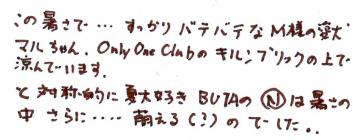 この暑さで… すっかり バテバテな M様の愛犬
マルちゃん、Only One Clubの キルンブリックの上で
涼んでいます。
と 対称的に 夏大好き BUTAの Ⓝは 暑さの
中 さらに…… 萌える(？)ので した。